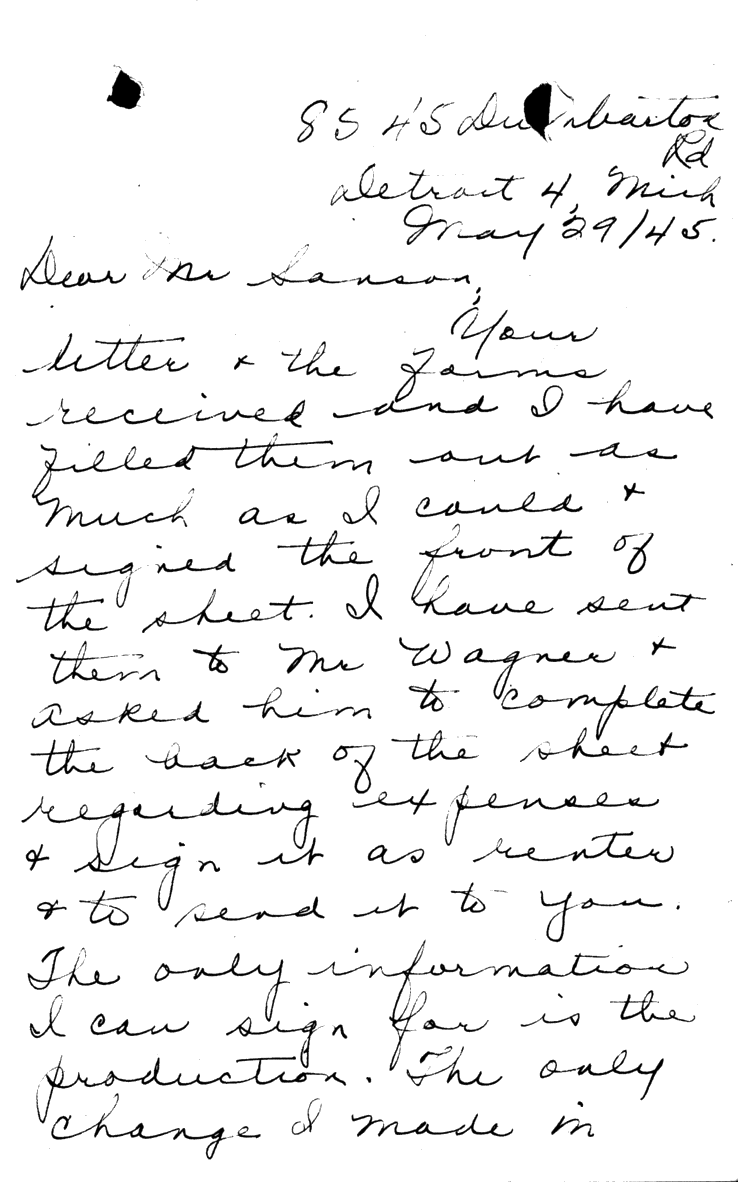 8545 Dumbarton
Rd
Detroit 4, Mich
May 29/45.
Dear Mr Sanson,
Your
letter & the forms
received and I have
filled them out as
much as I could &
signed the front of
the sheet. I have sent
them to Mr Wagner &
asked him to complete
the back of the sheet
regarding expenses
& sign it as renter
& to send it to you.
The only information
I can sign for is the
production. The only
change I made in